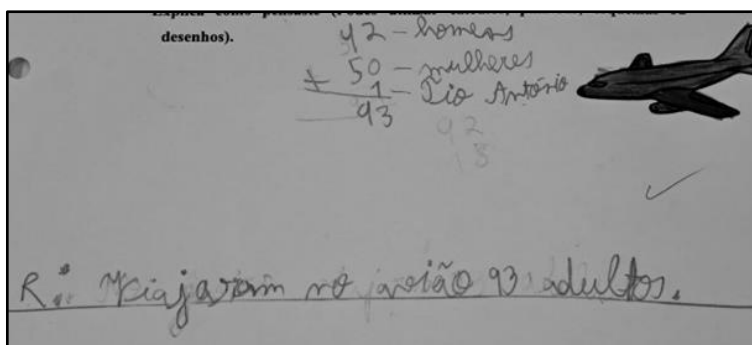 desenhos).
42 – homens
+ 50 – mulheres
1 – Tio António
93
92
18
R.: Viajaram no avião 93 adultos.